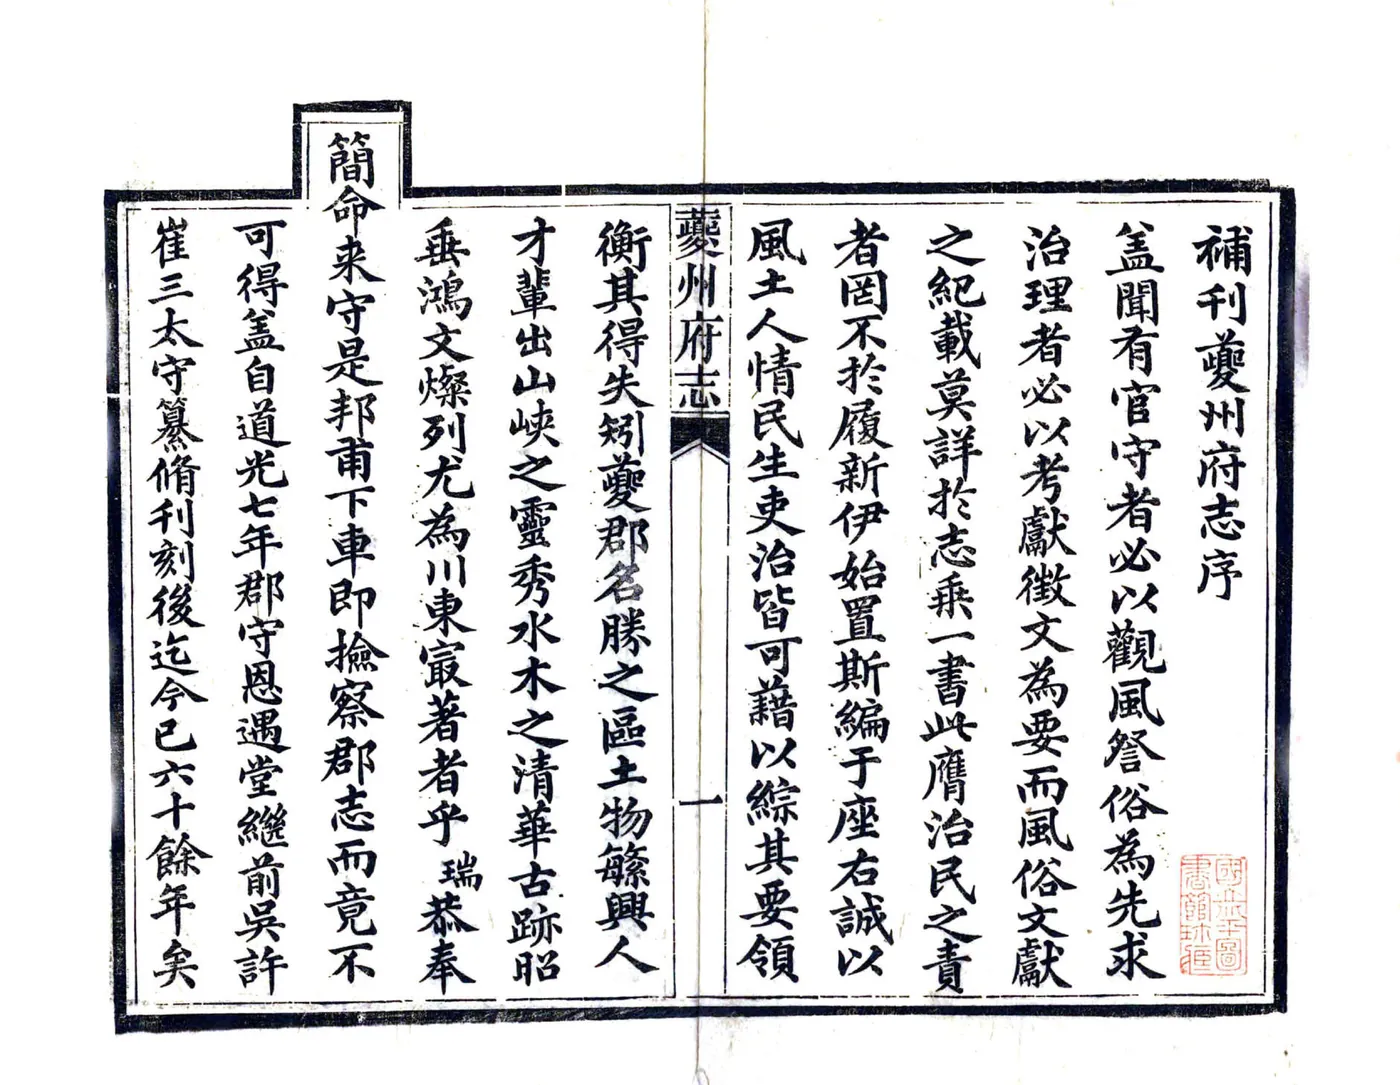 補刊夔州府志序
盖聞有官守者必以觀風詧俗為先求
治理者必以考獻徵文為要而風俗文獻
之紀載莫詳於志乘一書此膺治民之責
者罔不於履新伊始置斯編于座右誠以
風土人情民生吏治皆可藉以綜其要領
夔州府志
一
衡其得失矧夔郡名勝之區土物緐興人
才輩出山峽之靈秀水木之清華古跡昭
垂鴻文燦列尤為川東㝡著者乎瑞恭奉
簡命来守是邦甫下車即撿察郡志而竟不
可得盖自道光七年郡守恩遇堂繼前吳許
崔三太守纂脩刊刻後迄今已六十餘年矣
國立北平圖
書館珍藏